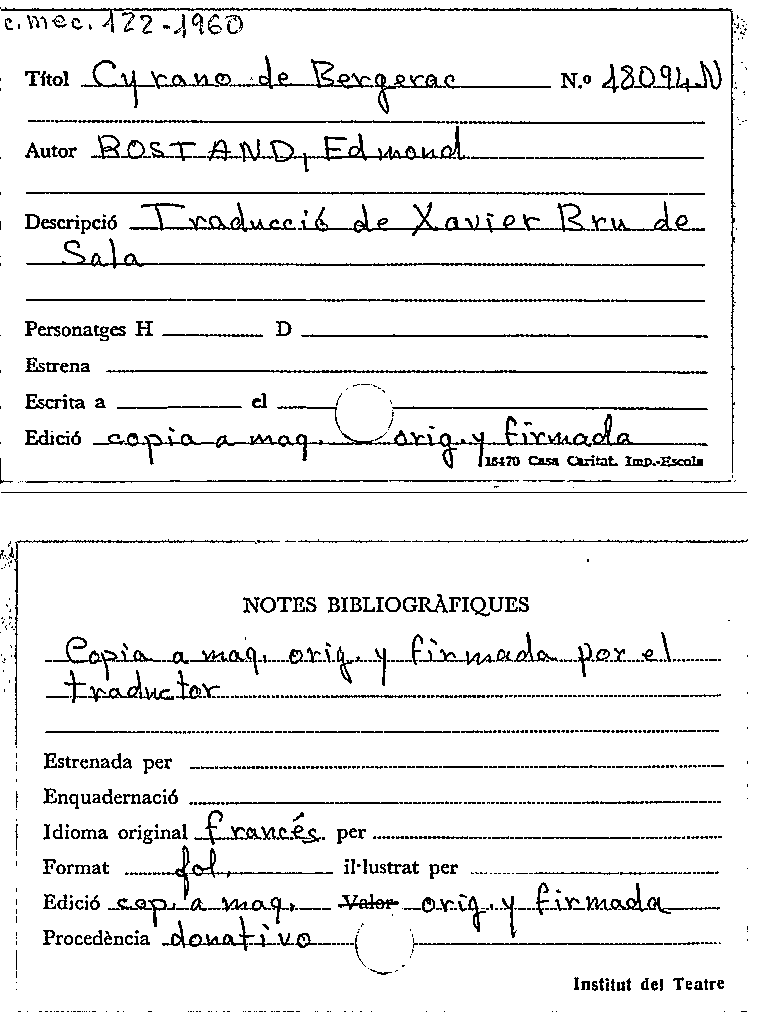 c.mec. 122-1960
Títol Cyrano de Bergerac N.º 18094-N
Autor ROSTAND, Edmond
Descripció Traducció de Xavier Bru de
Sala
Personatges H D
Estrena
Escrita a el
Edició copia a maq. orig. y firmada
15470 Casa Caritat. Imp.-Escola
NOTES BIBLIOGRÀFIQUES
Copia a maq. orig. y firmada por el
traductor
Estrenada per
Enquadernació
Idioma original francés per
Format fol. il·lustrat per
Edició cop. a maq. Valor orig. y firmada
Procedència donativo
Institut del Teatre